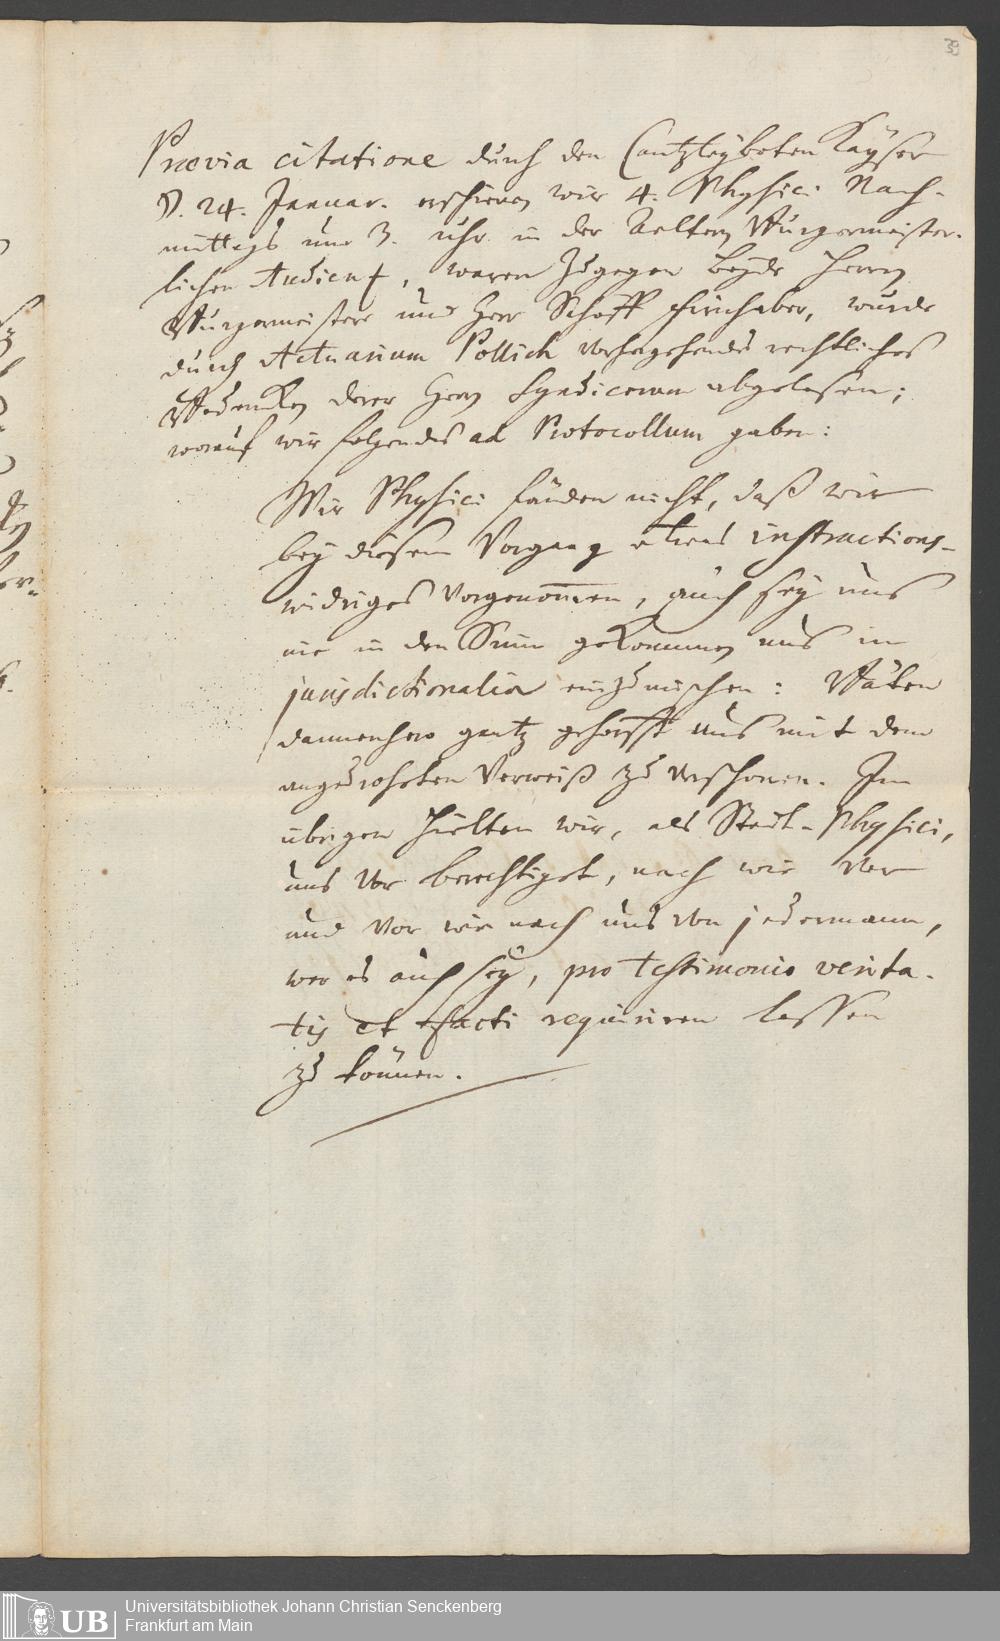 39
Prævia citatione durch den Cantzleybotten Kayser
d. 24. Januar. erschienen wir 4. Physici Nach-
mittags um 3. Uhr in der Aeltern Burgermeister-
lichen Audienz, waren zugegen beyde Herrn
Burgermeistere und Herr Schöff Firnhaber, wurde
durch Actuarium Pollich vorhergehendes rechtliches
Bedencken derer Herrn Syndicorum abgelesen;
worauf wir folgendes ad Protocollum gaben:
Wir Physici fänden nicht, daß wir
bey diesem Vorgang etwas instructions-
widriges vorgenom̄en, auch sey uns
nie in den Sinn gekommen uns in
jurisdictionalia einzumischen: Bäten
dannenhero gantz gehorsst uns mit dem
angedroheten Verweiß zu verschonen. Im
übrigen hielten wir, als Stadt-Physici,
uns vor berechtiget, nach wie vor
und vor wie nach uns von jedermann,
wer es auch sey, pro testimonio verita-
tis et facti requiriren lassen
zu können.
UB
Universitätsbibliothek Johann Christian Senckenberg
Frankfurt am Main